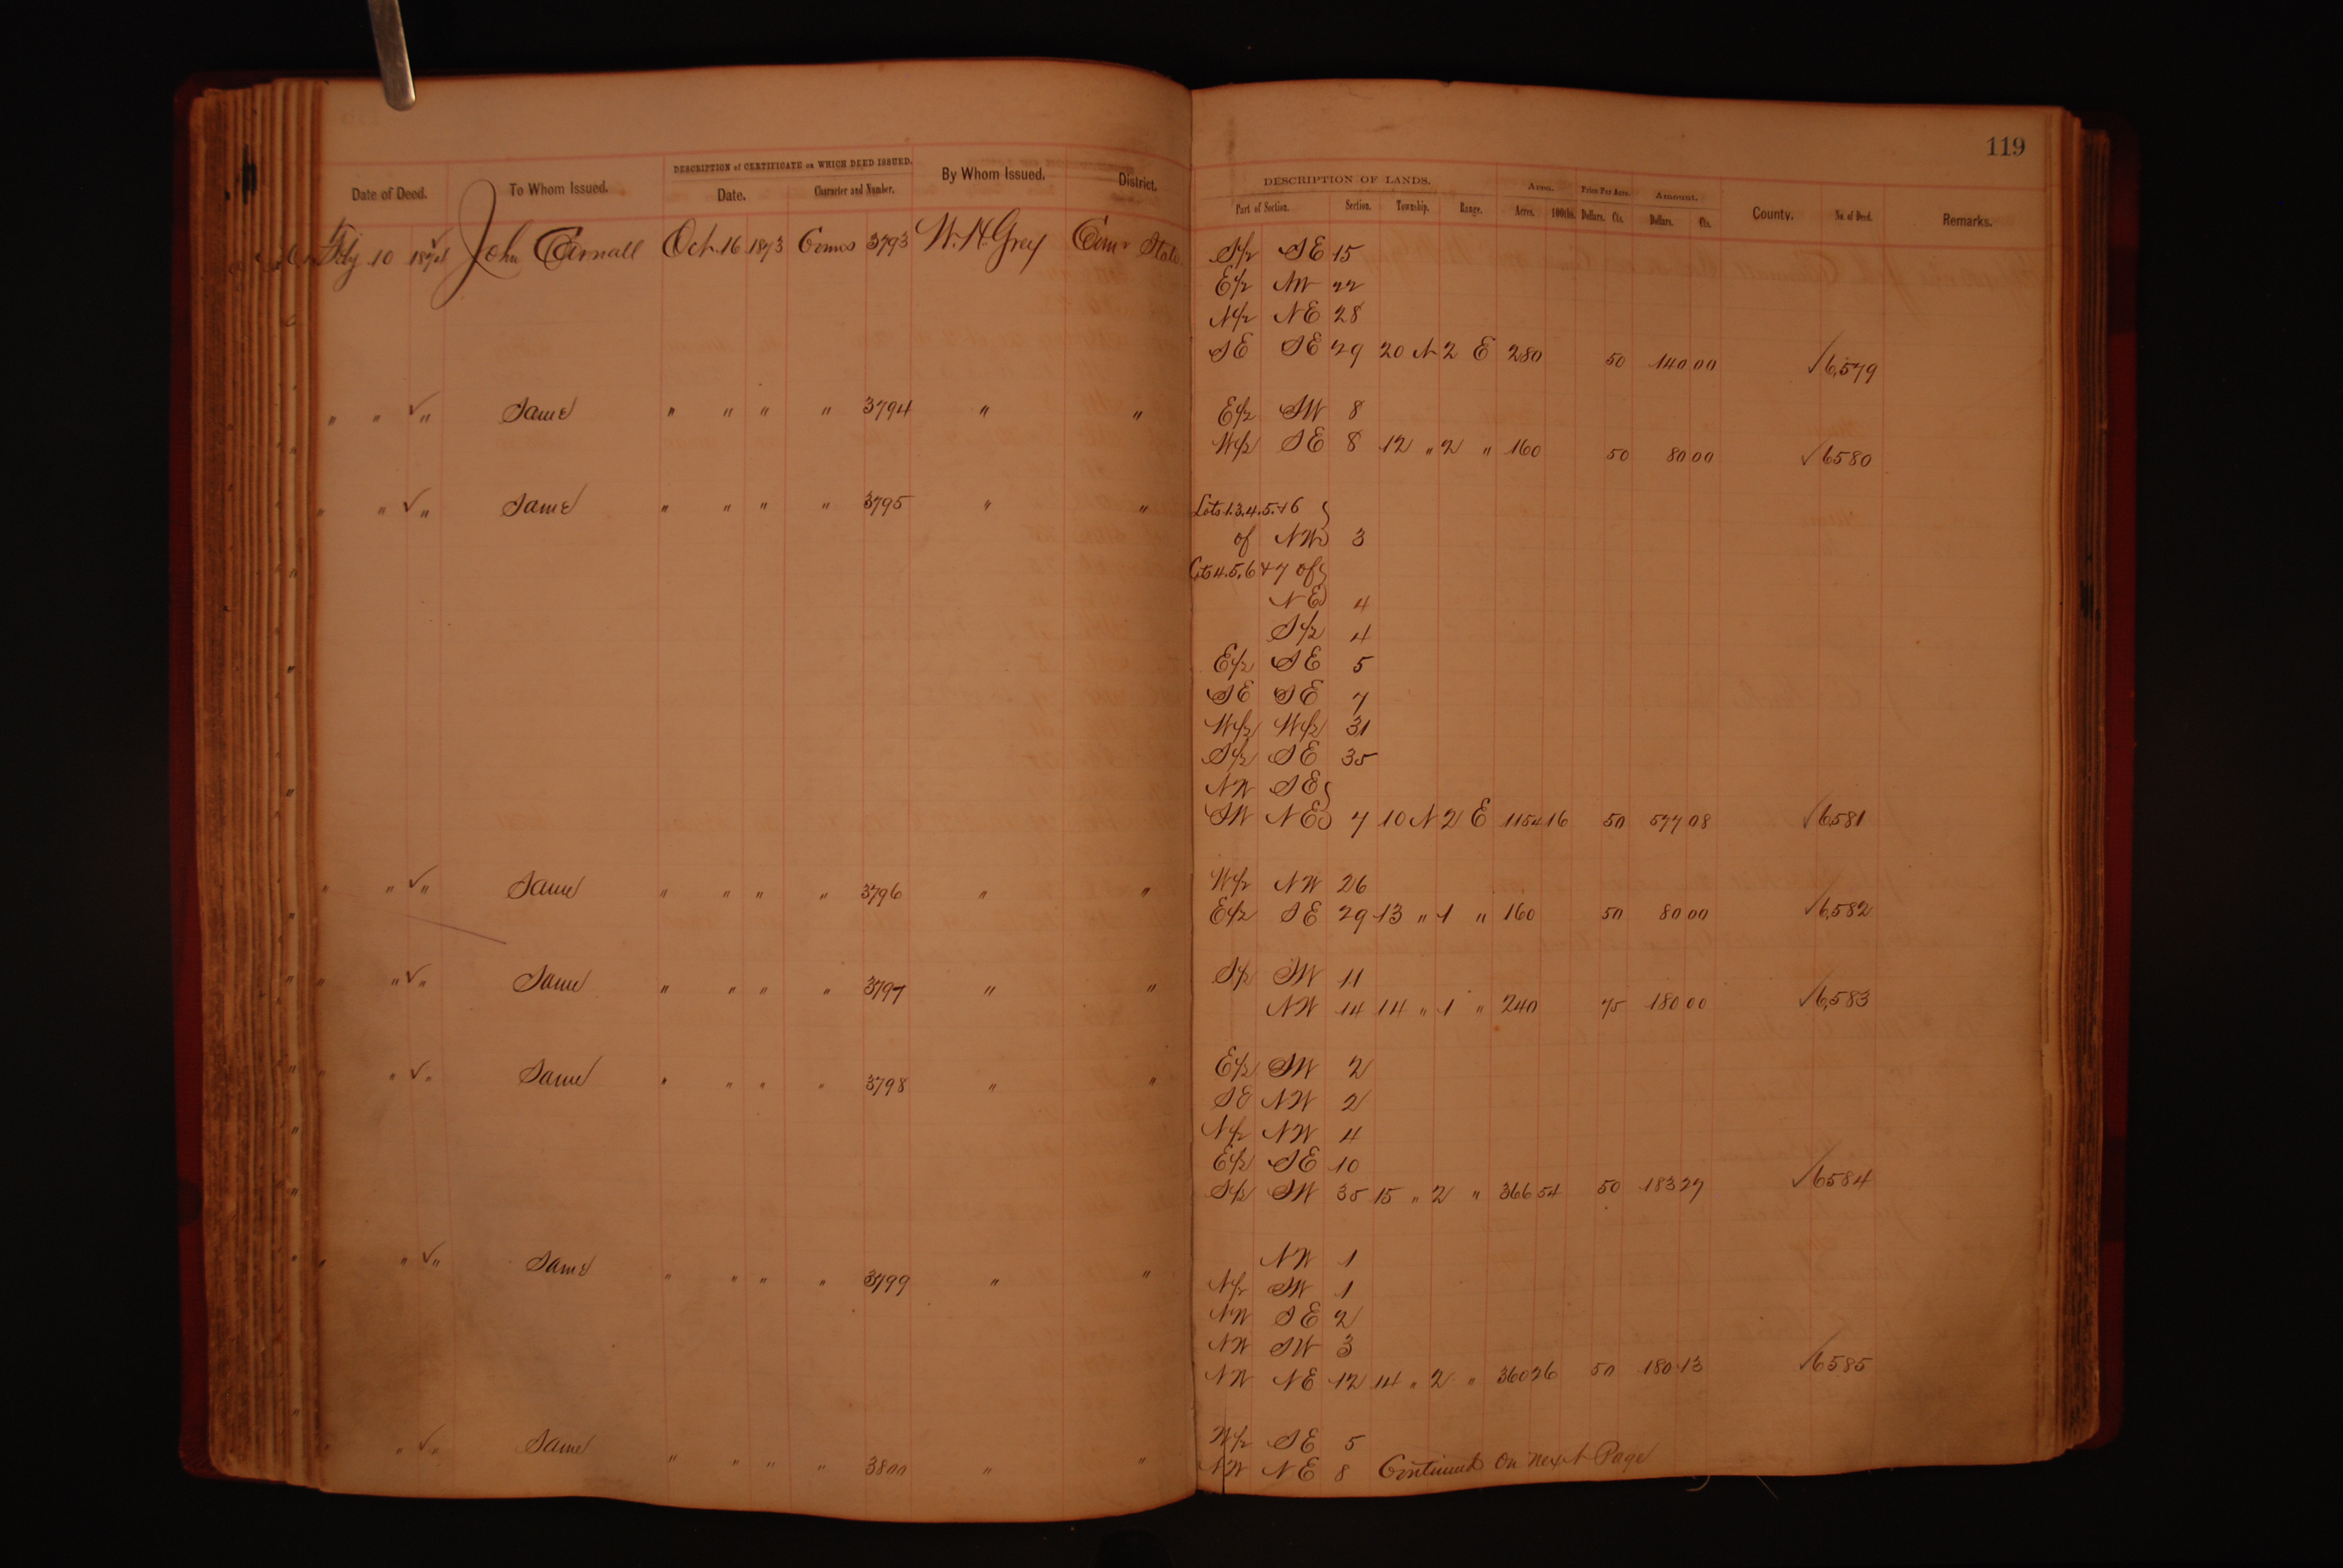 119
DESCRIPTION of CERTIFICATE on WHICH DEED ISSUED.
Date of Deed. To Whom Issued. Date. Character and Number. By Whom Issued. District.
DESCRIPTION OF LANDS. Area. Price Per Acre. Amount.
Part of Section. Section. Township. Range. Acres. 100ths. Dollars. Cts. Dollars. Cts. County. No. of Deed. Remarks.
10 John Oct 16 1873 3793 W. H. Grey Com State
S½ SE 15
E½ NW 22
N½ NE 28
SE SE 29 20 N 2 E 280 50 140 00 ✓6,579
" " ✓" Same " " " " 3794 " " E½ SW 8
W½ SE 8 12 " 2 " 160 50 80 00 ✓6580
" " ✓" Same " " " " 3795 " " Lots 1.3.4.5.+6 }
of NW 3
Lots 4.5.6 + 7 of }
NE 4
S½ 4
E½ SE 5
SE SE 7
W½ W½ 31
S½ SE 35
NW SE }
SW NE } 7 10 N 2 E 1154 16 50 577 08 ✓6581
" " ✓" Same " " " " 3796 " " W½ NW 26
E½ SE 29 13 " 1 " 160 50 80 00 ✓6,582
" " ✓" Same " " " " 3797 " " S½ SW 11
NW 14 14 " 1 " 240 75 180 00 ✓6,583
" " ✓" Same " " " " 3798 " " E½ SW 2
SE NW 2
N½ NW 4
E½ SE 10
S½ SW 35 15 " 2 " 366 54 50 183 27 ✓6584
" " ✓" Same " " " " 3799 " " NW 1
N½ SW 1
NW SE 2
NW SW 3
NW NE 12 14 " 2 " 360 26 50 180 13 ✓6585
" " ✓" Same " " " " 3800 " " W½ SE 5
NW NE 8 Continued on next Page